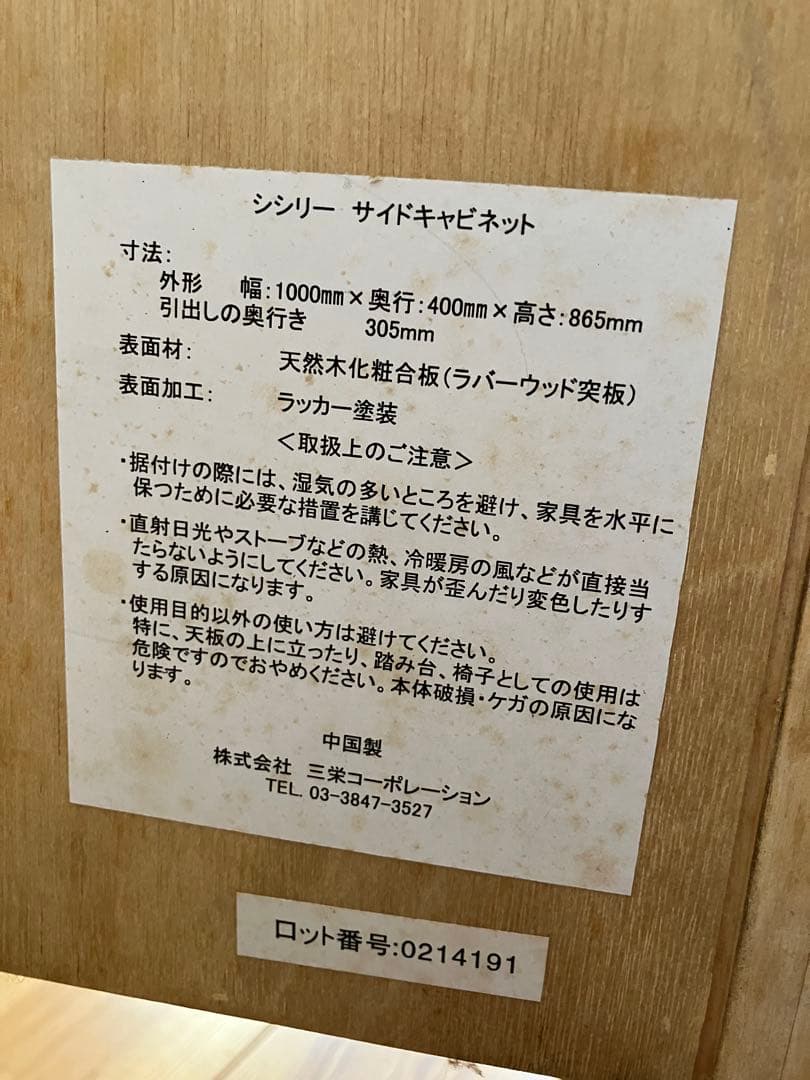 シシリー サイドキャビネット
寸法:
外形 幅:1000㎜×奥行:400㎜×高さ:865mm
引出しの奥行き 305mm
表面材: 天然木化粧合板(ラバーウッド突板)
表面加工: ラッカー塗装
＜取扱上のご注意＞
・据付けの際には、湿気の多いところを避け、家具を水平に
保つために必要な措置を講じてください。
・直射日光やストーブなどの熱、冷暖房の風などが直接当
たらないようにしてください。家具が歪んだり変色したりす
する原因になります。
・使用目的以外の使い方は避けてください。
特に、天板の上に立ったり、踏み台、椅子としての使用は
危険ですのでおやめください。本体破損・ケガの原因にな
ります。
中国製
株式会社 三栄コーポレーション
TEL. 03-3847-3527
ロット番号:0214191